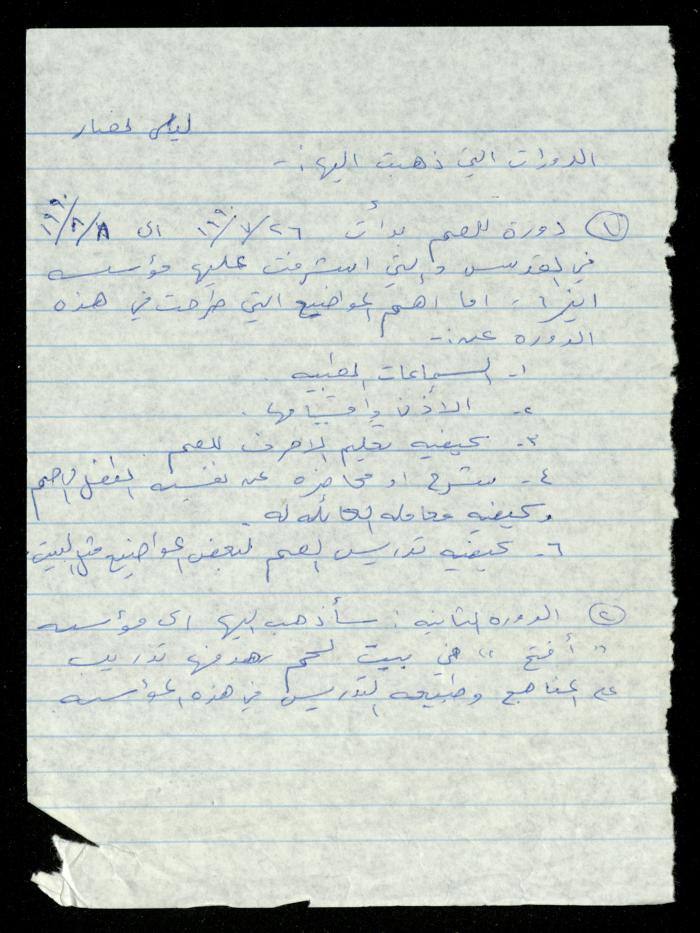 ليلى خضار
الدورات التي ذهبت اليها :-
① دورة للصم بدأت ٢٦/٧/١٩٩٠ الى ٨/٢/١٩٩٠
في القدس والتي اشرفت عليها مؤسسه
اما اهم المواضيع التي طرحت في هذه
الدوره عن :-
١- السماعات الطبيه .
٢- الاذن واقسامها .
٣- كيفيه تعليم الاحرف للصم
٤- شرح او محاضره عن نفسيه الطفل الاصم
وكيفيه معامله العائله له .
٦- كيفيه تدريس الصم لبعض المواضيع مثل البيت .
② الدوره الثانيه : سأذهب اليها الى مؤسسه
" أفتح " في بيت لحم بهدفها تدريب
على المناهج وطبيعه التدريس في هذه المؤسسه